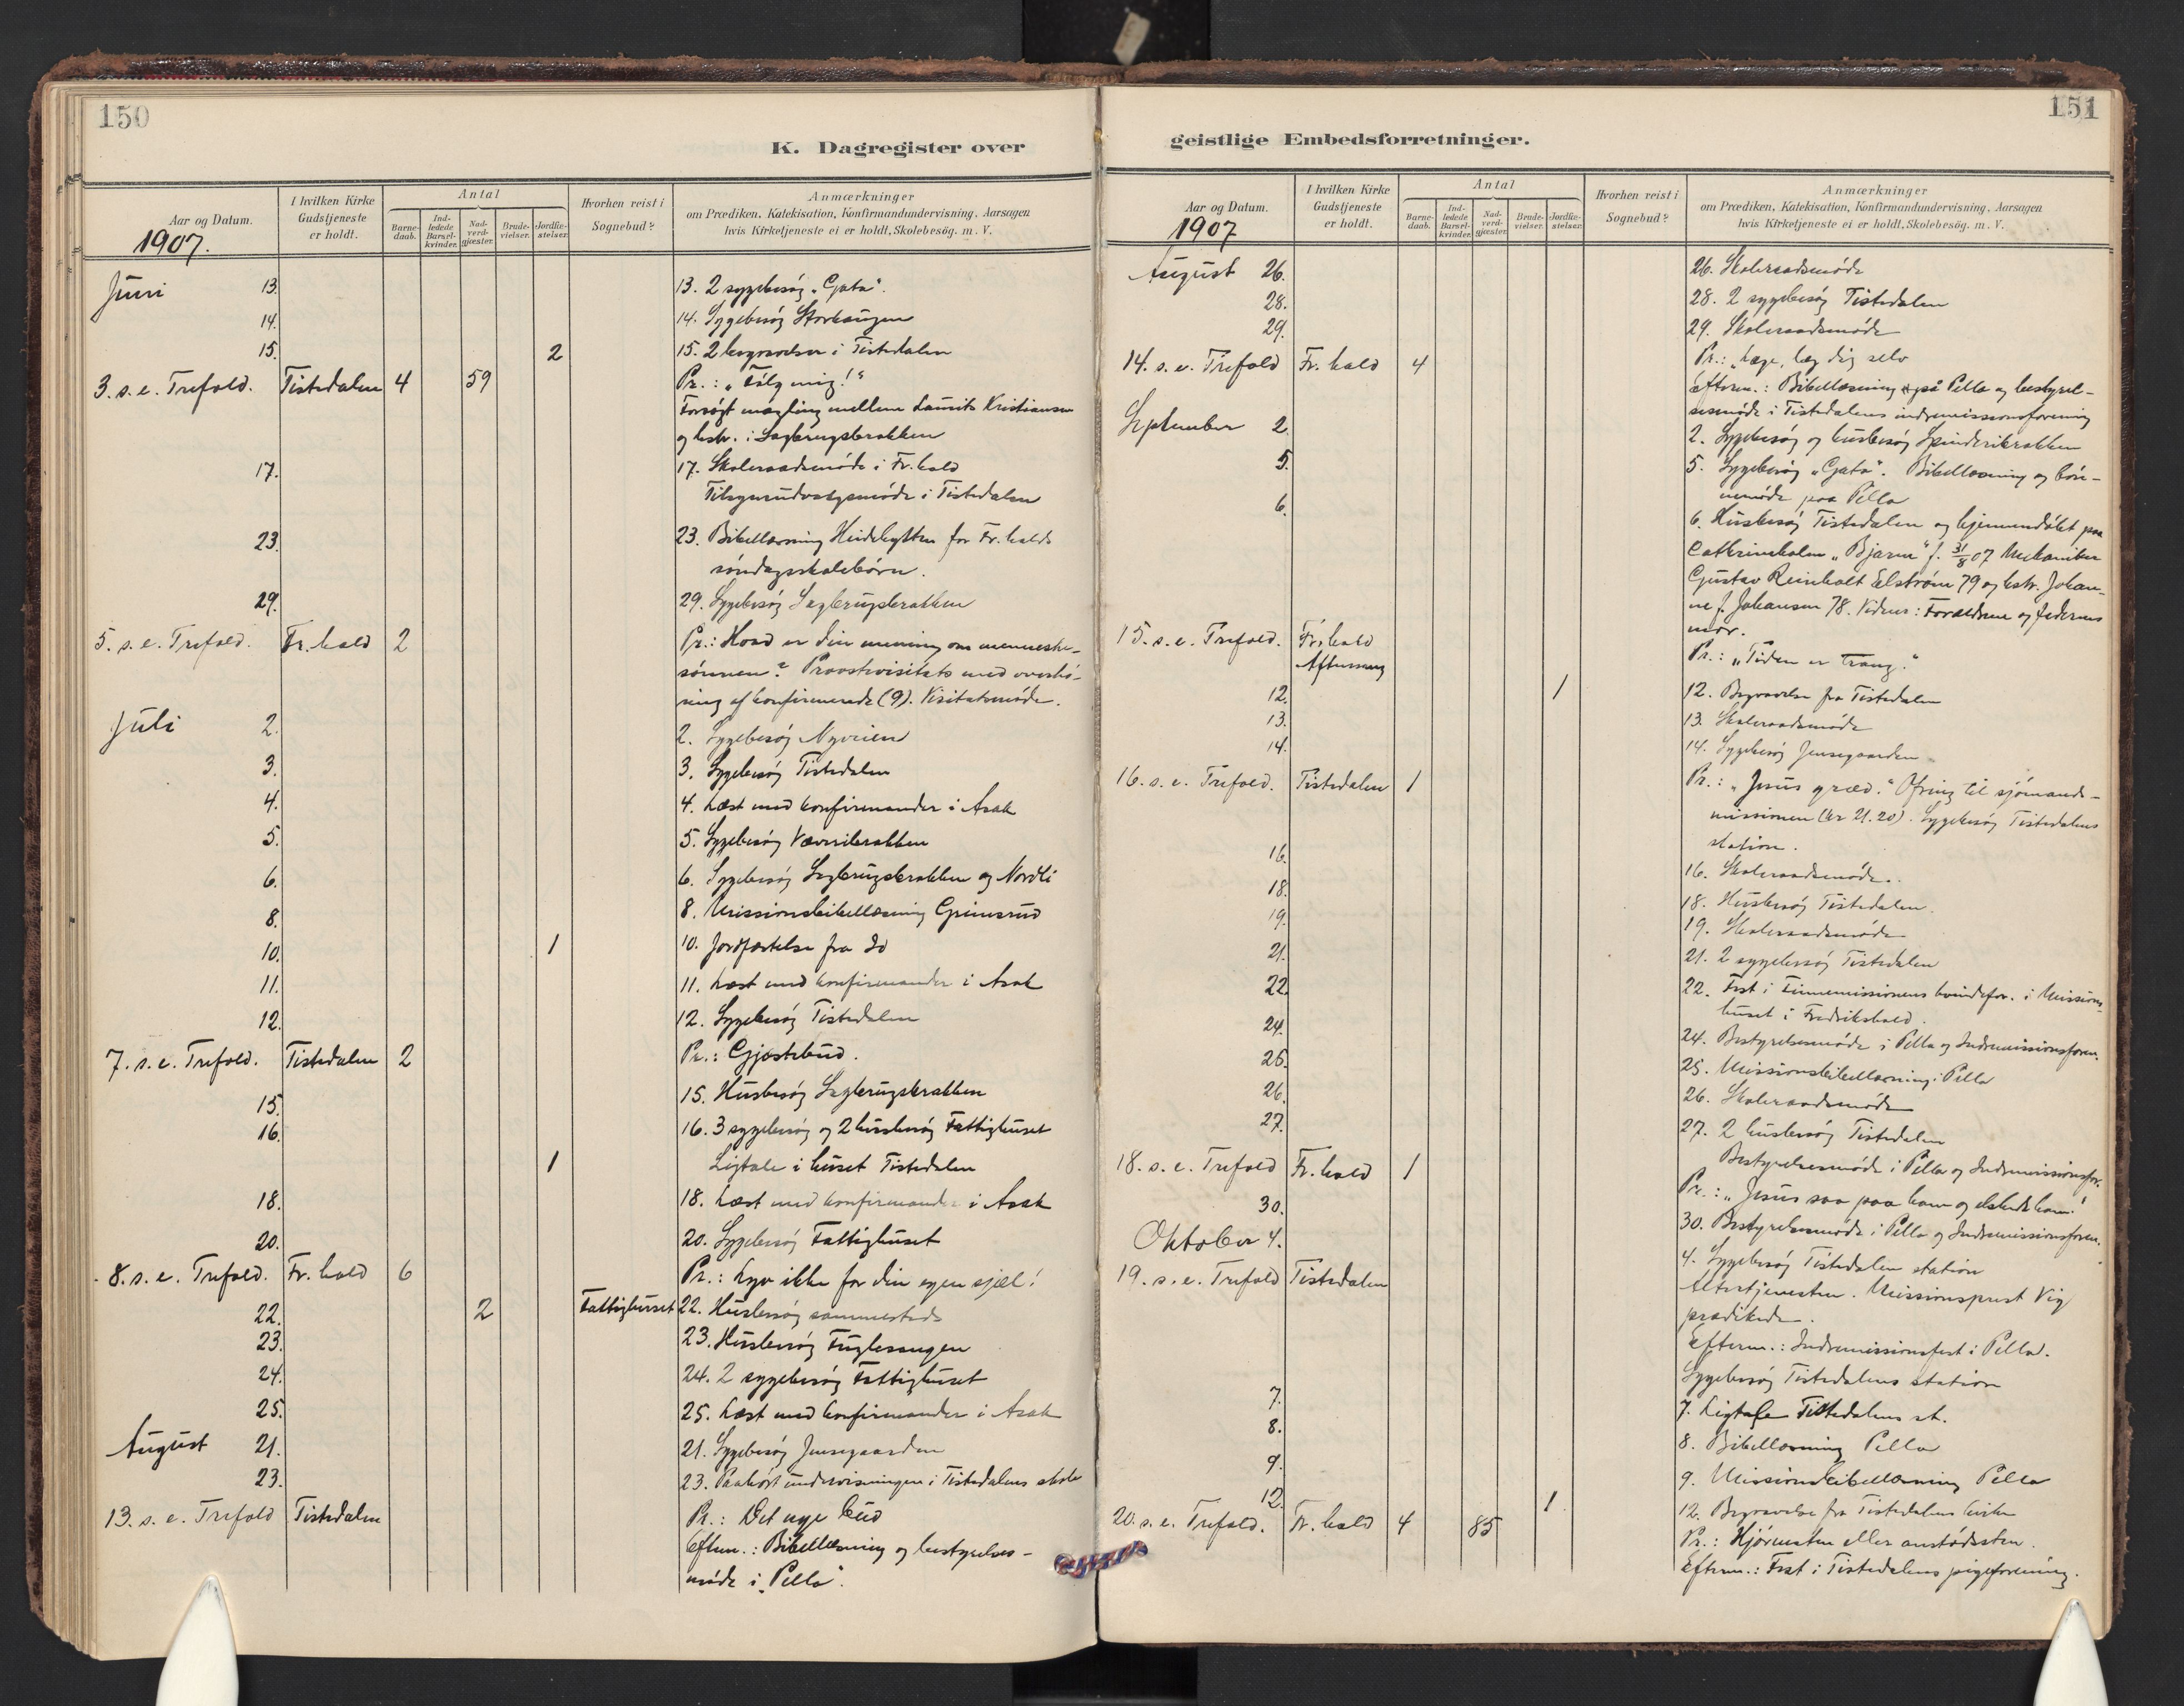 150
K. Dagregister over
Aar og Datum.
1907.
I hvilken Kirke Gudstjeneste er holdt.
Antal
Barne-daab.
Ind-ledede Barsel-kvinder.
Nad-verd-gjæster.
Brude-vielser.
Jordfæ-stelser.
Hvorhen reist i Sognebud?
Anmærkninger
om Prædiken, Katekisation, Konfirmandundervisning, Aarsagen
hvis Kirketjeneste ei er holdt, Skolebesög. m. V.
Juni 13. 13. 2 sygebesøg "Gata".
14. 14. Sygebesøg Storhaugen
15. 2 15. 2 begravelser i Tistedalen
3. s. e. Trefold. Tistedalen 4 59 Pr.: "Følg mig!"
Forsøgt mægling mellem Laurits Kristiansen
og hstr. i Sagbrugsbrakken
17. 17. Skoleraadsmøde i Fr.hald
Tilsynsudvalgsmøde i Tistedalen
23. 23. Bibellæsning Heidehytten for Fr.halds
søndagsskolebørn.
29. 29. Sygebesøg Sagbrugsbrakken
5. s. e. Trefold. Fr. hald 2 Pr.: Hvad er din mening om menneske-
sønnen? Provstevisitats med overhø-
ring af konfirmerede (9). Visitatsmøde.
Juli 2. 2. Sygebesøg Nyveien
3. 3. Sygebesøg Tistedalen
4. 4. Læst med konfirmander i Asak
5. 5. Sygebesøg Væveribrakken
6. 6. Sygebesøg Sagbrugsbrakken og Nordli
8. 8. Missionsbibellæsning Grimsrud
10. 1 10. Jordfæstelse fra Id
11. 11. Læst med konfirmander i Asak
12. 12. Sygebesøg Tistedalen
7. s. e. Trefold. Tistedalen 2 Pr.: Gjæstebud.
15. 15. Husbesøg Sagbrugsbrakken
16. 16. 3 sygebesøg og 2 husbesøg Fattighuset
1 Ligtale i huset Tistedalen
18. 18. Læst med konfirmander i Asak
20. 20. Sygebesøg Fattighuset
8. s. e. Trefold. Fr. hald 6 Pr.: Lyv ikke for din egen sjæl!
22. 2 Fattighuset 22. Husbesøg sammesteds
23. 23. Husbesøg Fuglesangen
24. 24. 2 sygebesøg Fattighuset
25. 25. Læst med konfirmander i Asak
August 21. 21. Sygebesøg Jensegaarden
23. 23. Paahørt undervisningen i Tistedalens skole
13. s. e. Trefold Tistedalen Pr.: Det nye bud
Efterm.: Bibellæsning og bestyrelses-
møde i "Pella".
151
geistlige Embedsforretninger.
Aar og Datum.
1907
I hvilken Kirke Gudstjeneste er holdt.
Antal
Barne-daab.
Ind-ledede Barsel-kvinder.
Nad-verd-gjæster.
Brude-vielser.
Jordfæ-stelser.
Hvorhen reist i Sognebud?
Anmærkninger
om Prædiken, Katekisation, Konfirmandundervisning. Aarsagen
hvis Kirketjeneste ei er holdt, Skolebesög. m. V.
August 26. 26. Skoleraadsmøde
28. 28. 2 sygebesøg Tistedalen
29. 29. Skoleraadsmøde
14. s. e. Trefold Fr. hald 4 Pr.: "Læge, læg dig selv
Efterm.: Bibellæsning på Pella og bestyrel-
sesmøde i Tistedalens indremissionsforening
September 2. 2. Sygebesøg og husbesøg Spinderibrakken
5. 5. Sygebesøg "Gata". Bibellæsning og bøn-
nemøde paa Pella
6. 6. Husbesøg Tistedalen og hjemmedøbt paa
Cathrineholm "Bjarne" f. 31/8 07 Mekaniker
Gustav Reinholt Elstrøm 79 og hstr. Johan-
ne f. Johansen 78. Vidner: Forældrene og faderens
mor.
15. s. e. Trefold. Fr. hald Pr.: "Tiden er trang."
Aftensang
12. 1 12. Begravelse fra Tistedalen
13. 13. Skoleraadsmøde
14. 14. Sygebesøg Jensegaarden
16. s. e. Trefold. Tistedalen 1 Pr.: "Jesus græd." Ofring til sjømands-
missionen (kr 21.20). Sygebesøg Tistedalens
station.
16. 16. Skoleraadsmøde.
18. 18. Husbesøg Tistedalen.
19. 19. Skoleraadsmøde
21. 21. 2 sygebesøg Tistedalen
22. 22. Fest i Finnemissionens kvindefor. i Missions-
huset i Fredrikshald.
24. 24. Bestyrelsesmøde i Pella og Indremissionsforen.
25. 25. Missionsbibellæsning i Pella
26. 26. Skoleraadsmøde
27. 27. 2 husbesøg Tistedalen
Bestyrelsesmøde i Pella og Indremissionsfor.
18. s. e. Trefold Fr. hald 1 Pr.: "Jesus saa paa ham og elskede ham!
30. 30. Bestyrelsesmøde i Pella og Indremissionsforen.
Oktober 4. 4. Sygebesøg Tistedalen station
19. s. e. Trefold Tistedalen Altertjenesten. Missionsprest Vig
prædikede.
Efterm.: Indremissionsfest i Pella.
Sygebesøg Tistedalens station
7. 7. Ligtale Tistedalens st.
8. 8. Bibellæsning Pella
9. 9. Missionsbibellæsning Pella
12. 1. 12. Begravelse fra Tistedalens kirke
20. s. e. Trefold. Fr. hald 4 85 Pr.: Hjørnesten eller anstødssten.
Efterm.: Fest i Tistedalens pigeforening.